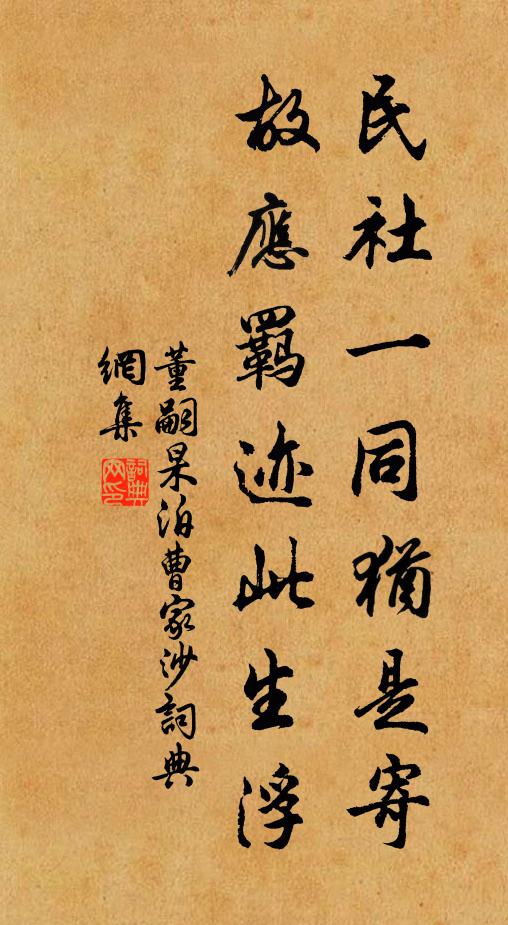 民社一同猶是寄
故應羈迹此生浮
董嗣杲泊曹家沙詞典
網集
詞典网印